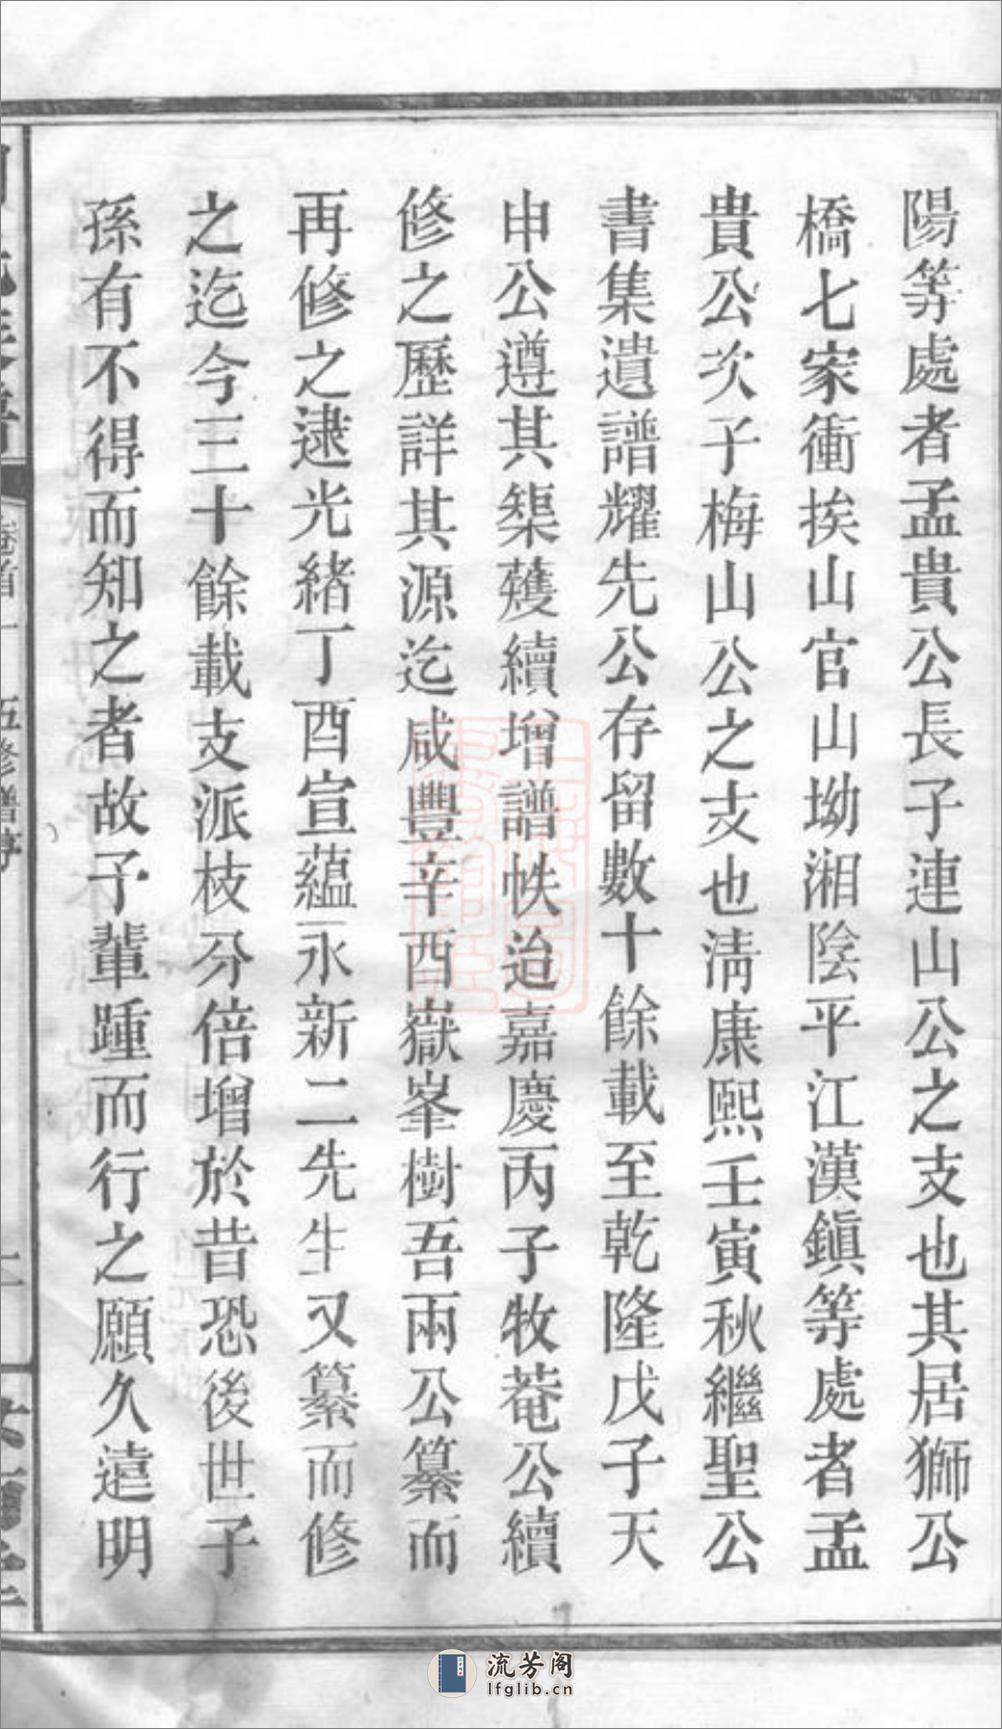 陽等處者孟貴公長子連山公之支也其居獅公
橋七家衝挨山官山坳湘陰平江漢鎮等處者孟
貴公次子梅山公之支也淸康熙壬寅秋繼聖公
書集遺譜耀先公存留數十餘載至乾隆戊子天
申公遵其榘蒦續增譜帙迨嘉慶丙子牧菴公續
修之歷詳其源迄咸豐辛酉嶽峯樹吾兩公纂而
再修之逮光緒丁酉宣蘊永新二先生又纂而修
之迄今三十餘載支派枝分倍增於昔恐後世子
孫有不得而知之者故子輩踵而行之願久遠明
卷首一 五修譜序
流芳阁
lfglib.cn